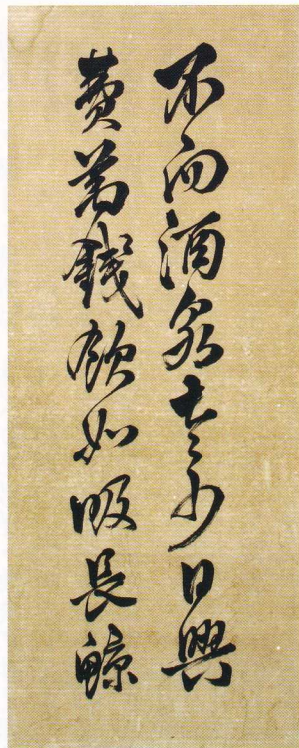 不向酒泉日興
費萬錢飲如吸長鯨